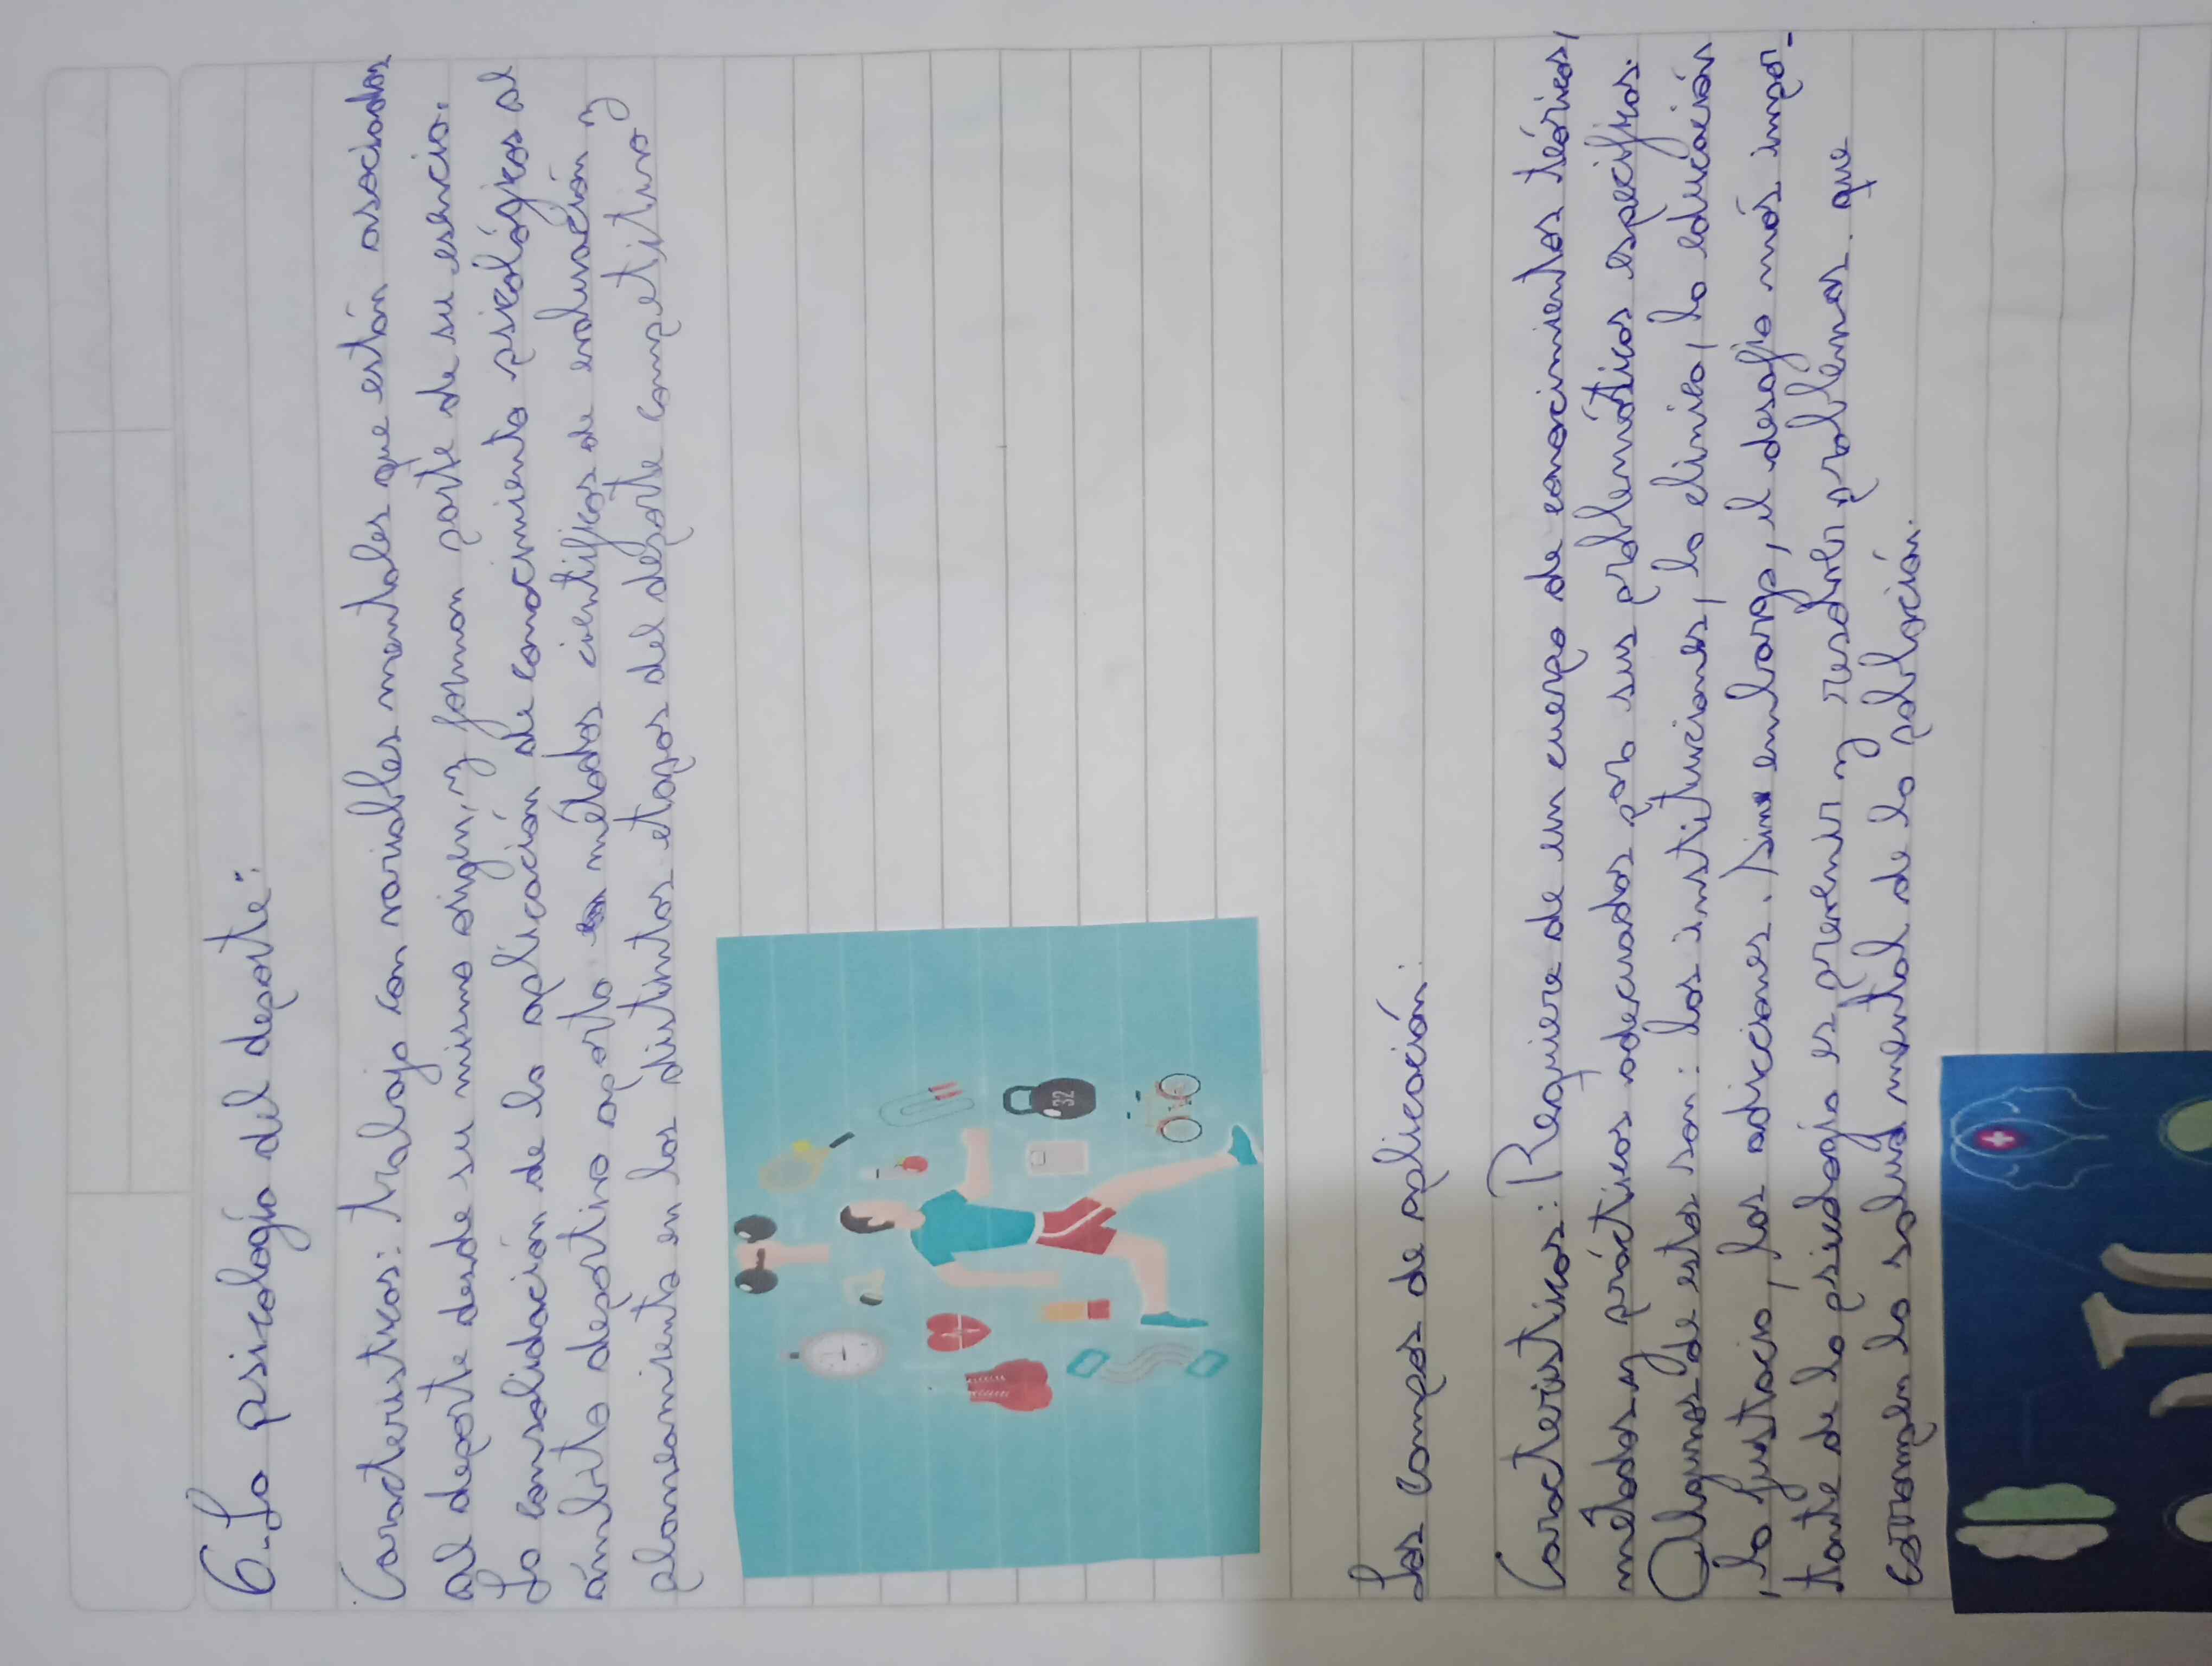 6-La psicología del deporte:
Características: trabaja con variables mentales que están asociadas
al deporte desde su mismo origen, y forman parte de su esencia.
La consolidación de la aplicación de conocimiento psicológicos al
ámbito deportivo aporta métodos científicos de evaluación y
planeamiento en las distintas etapas del deporte competitivo
32
Los campos de aplicación:
Características: Requiere de un cuerpo de conocimientos teóricos,
métodos y prácticas adecuados por sus problemáticas específicas.
Algunas de estas son: las instituciones, la clínica, la educación
, la justicia, las adicciones. Sin embargo, el desafío más impor-
tante de la psicología es prevenir y resolver problemas que
corrompen la salud mental de la población.